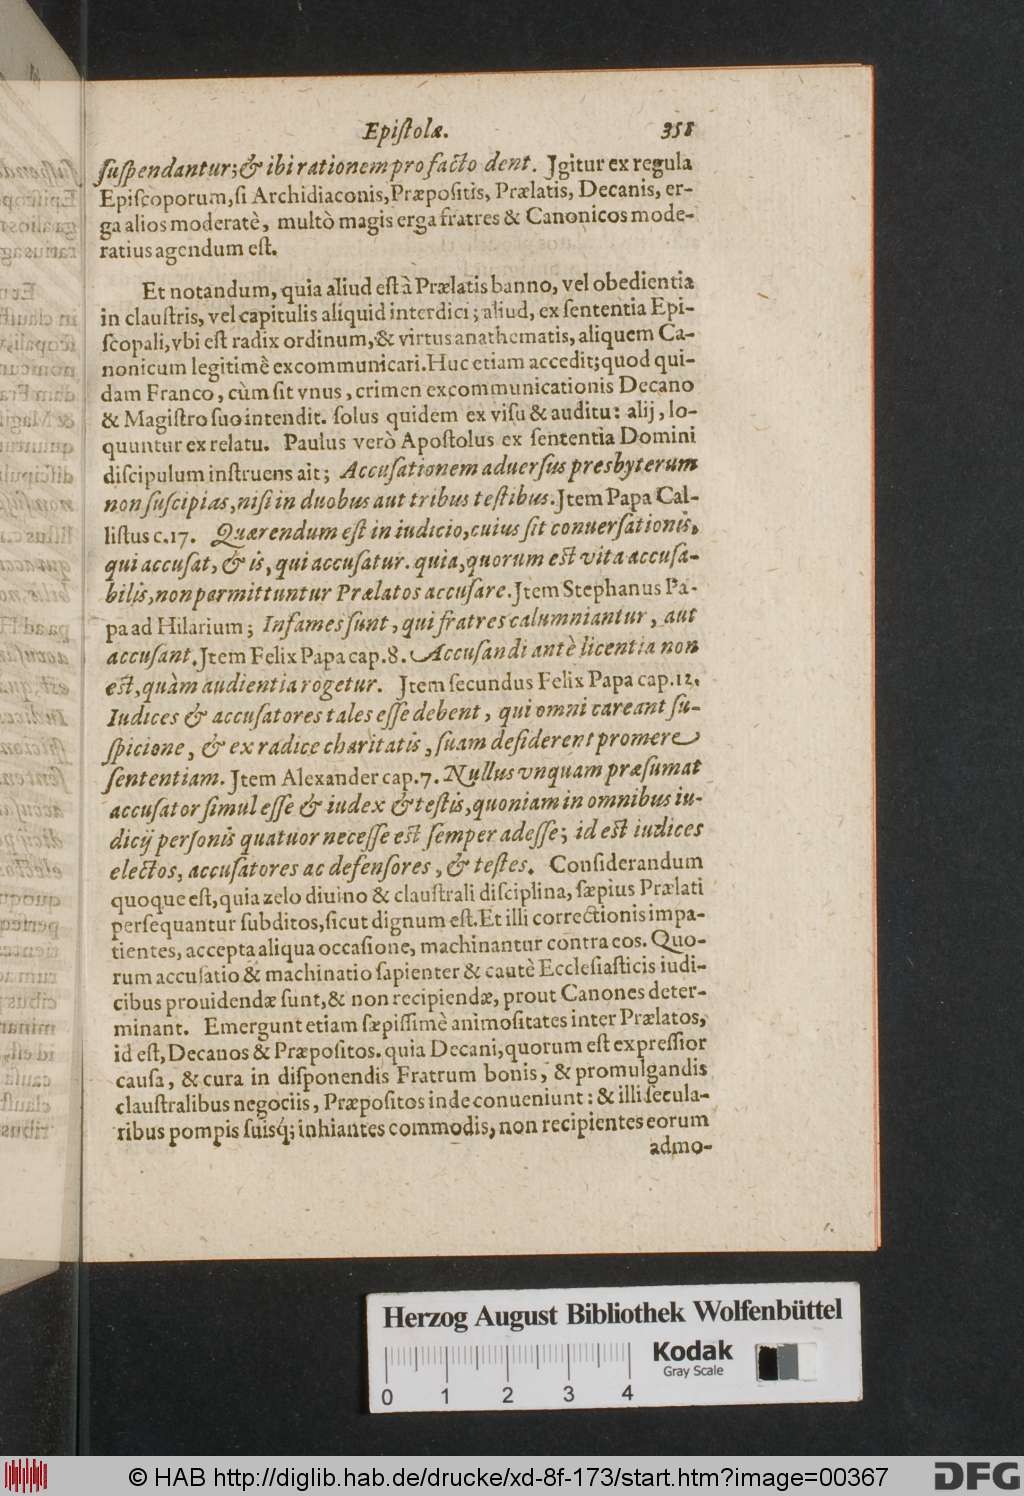 Epiſtolæ. 358
ſuſpendantur; & ibi rationem pro facto dent. Jgitur ex regula
Epiſcoporum, ſi Archidiaconis, Præpoſitis, Prælatis, Decanis, er-
ga alios moderatè, multò magis erga fratres & Canonicos mode-
ratius agendum eſt.
Et notandum, quia aliud eſt à Prælatis banno, vel obedientia
in clauſtris, vel capitulis aliquid interdici; aliud, ex ſententia Epi-
ſcopali, vbi eſt radix ordinum, & virtus anathematis, aliquem Ca-
nonicum legitimè excommunicari. Huc etiam accedit; quod qui-
dam Franco, cùm ſit vnus, crimen excommunicationis Decano
& Magiſtro ſuo intendit. ſolus quidem ex viſu & auditu: alij, lo-
quuntur ex relatu. Paulus verò Apoſtolus ex ſententia Domini
diſcipulum inſtruens ait; Accuſationem aduerſus presbyterum
non ſuſcipias, niſi in duobus aut tribus teſtibus. Jtem Papa Cal-
liſtus c. 17. Quærendum eſt in iudicio, cuius ſit conuerſationis,
qui accuſat, & is, qui accuſatur. quia, quorum eſt vita accuſa-
bilis, non permittuntur Prælatos accuſare. Jtem Stephanus Pa-
pa ad Hilarium; Infames ſunt, qui fratres calumniantur, aut
accuſant. Jtem Felix Papa cap. 8. Accuſandi antè licentia non
eſt, quàm audientia rogetur. Jtem ſecundus Felix Papa cap. 12.
Iudices & accuſatores tales eſſe debent, qui omni careant ſu-
ſpicione, & ex radice charitatis, ſuam deſiderent promere
ſententiam. Jtem Alexander cap. 7. Nullus vnquam præſumat
accuſator ſimul eſſe & iudex & teſtis, quoniam in omnibus iu-
dicij perſonis quatuor neceſſe eſt ſemper adeſſe; id eſt iudices
electos, accuſatores ac defenſores, & teſtes. Conſiderandum
quoque eſt, quia zelo diuino & clauſtrali diſciplina, ſæpius Prælati
perſequantur ſubditos, ſicut dignum eſt. Et illi correctionis impa-
tientes, accepta aliqua occaſione, machinantur contra eos. Quo-
rum accuſatio & machinatio ſapienter & cautè Eccleſiaſticis iudi-
cibus prouidendæ ſunt, & non recipiendæ, prout Canones deter-
minant. Emergunt etiam ſæpiſſimè animoſitates inter Prælatos,
id eſt, Decanos & Præpoſitos. quia Decani, quorum eſt expreſſior
cauſa, & cura in diſponendis Fratrum bonis, & promulgandis
clauſtralibus negociis, Præpoſitos inde conueniunt: & illi ſecula-
ribus pompis ſuisq́; inhiantes commodis, non recipientes eorum
admo-
Herzog August Bibliothek Wolfenbüttel
0 1 2 3 4
Kodak
Gray Scale
© HAB http://diglib.hab.de/drucke/xd-8f-173/start.htm?image=00367
DFG